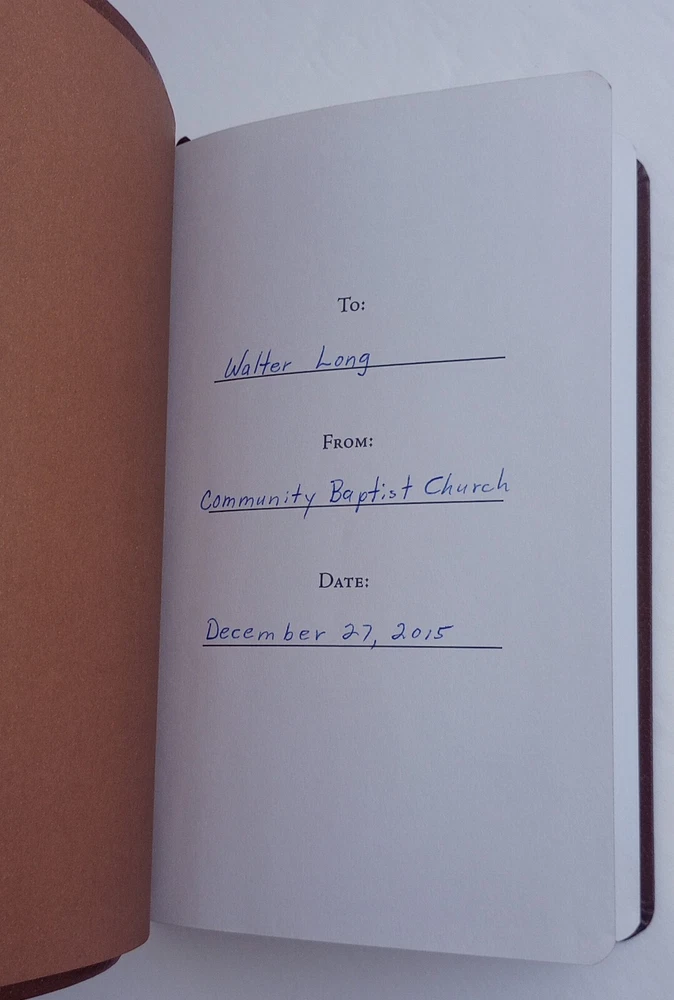 To:
Walter Long
From:
Community Baptist Church
Date:
December 27, 2015